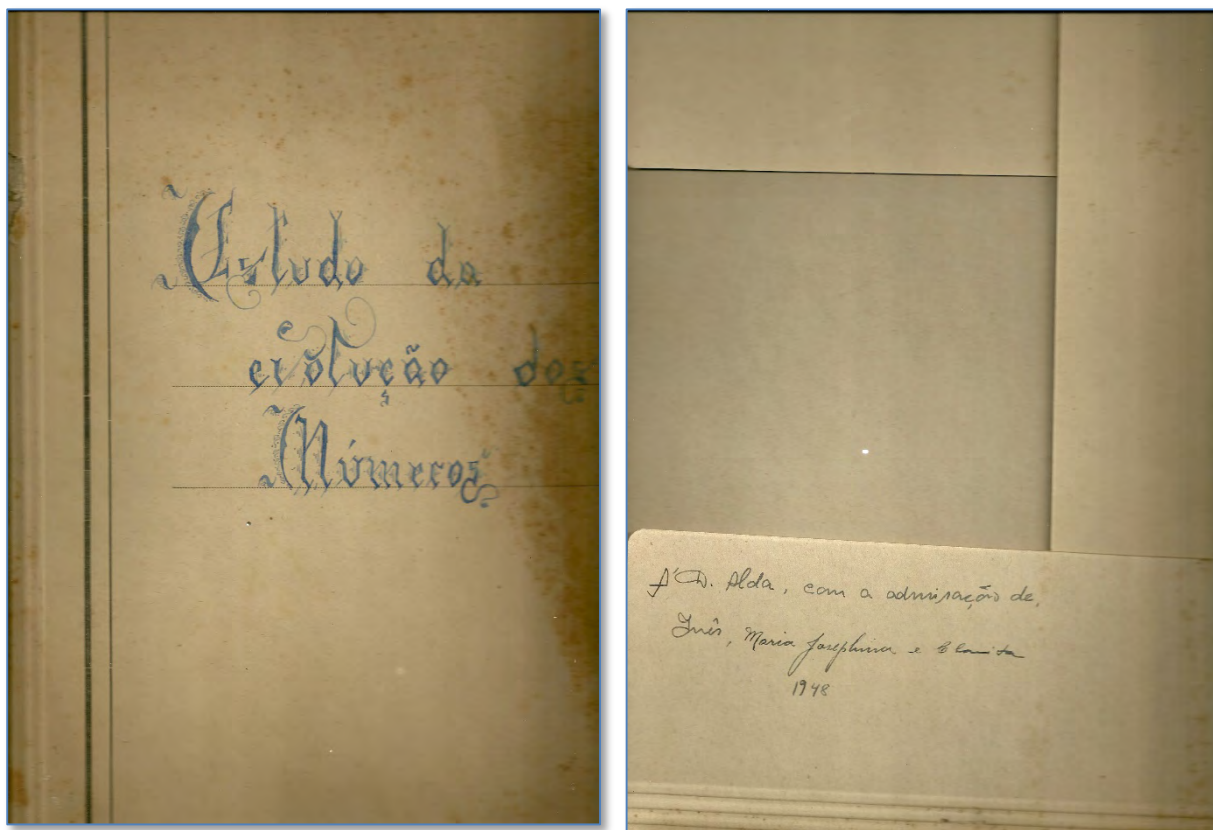 Estudo da
evolução dos
Números
À D. Alda, com a admiração de,
Inês, Maria Josephina e
1948